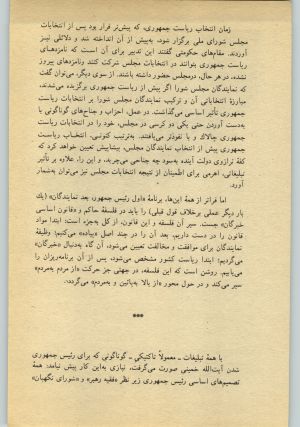 زمان انتخاب ریاست جمهوری، که پیش‌تر قرار بود پس از انتخابات
مجلس شورای ملی برگزار شود، به‌پیش از آن انداخته شد و دلائلی نیز
آوردند. مقام‌های حکومتی گفتند این تدبیر برای آن است که نامزدهای
ریاست جمهوری بتوانند در انتخابات مجلس شرکت کنند ونامزدهای پیروز
نشده، در هر حال، درمجلس حضور داشته باشند. از سوی دیگر، می‌توان گفت
که نمایندگان مجلس شورا اگر پیش از ریاست جمهوری برگزیده می‌شدند،
مبارزهٔ انتخاباتی آن و ترکیب نمایندگان مجلس شورا بر انتخابات ریاست
جمهوری تأثیر اساسی می‌گذاشت. در عمل، احزاب و جناح‌های گوناگونی با
به‌دست آوردن حتی یکی دو کرسی در مجلس، خود را در انتخابات ریاست
جمهوری چالاك و با نفوذتر می‌یافتند. به‌ترتیب کنونی، انتخاب ریاست
جمهوری پیش از انتخاب نمایندگان مجلس، پیشاپیش تعیین خواهد کرد که
کفهٔ ترازوی دولت آینده به‌سود چه جناحی می‌چربد، و این را، علاوه بر تأثیر
تبلیغاتی، اهرمی برای اطمینان از نتیجه انتخابات مجلس نیز می‌توان به‌شمار
آورد.
اما فراتر از همهٔ این‌ها، برنامهٔ «اول رئیس جمهور، بعد نمایندگان» (یك
بار دیگر عملی برخلاف قول قبلی) را باید در فلسفهٔ حاکم و «قانون اساسی
خبرگان» جست. سیر آن فلسفه و این قانون، از کل به‌جزء است: ابتدا مواد
قانون را در دست داریم، بعد آن را در چند اصل «پیاده» می‌کنیم؛ وظیفهٔ
نمایندگان برای موافقت و مخالفت تعیین می‌شود، آن گاه به‌دنبال «خبرگان»
می‌گردیم؛ ابتدا ریاست کشور مشخص می‌شود، پس از آن برنامه‌ریزان را
می‌یابیم. روشن است که این فلسفه، در جهتی جز حرکت «از مردم به‌مردم»
سیر می‌کند و در حول محور «از بالا به‌پائین و به‌مردم» می‌گردد.
***
با همهٔ تبلیغات ـ معمولاً تاکتیکی ـ گوناگونی که برای رئیس جمهوری
شدن آیت‌الله خمینی صورت می‌گرفت، نیازی به‌این کار پیش نیامد: همهٔ
تصمیم‌های اساسی رئیس جمهوری زیر نظر «فقیه رهبر» و «شورای نگهبان»